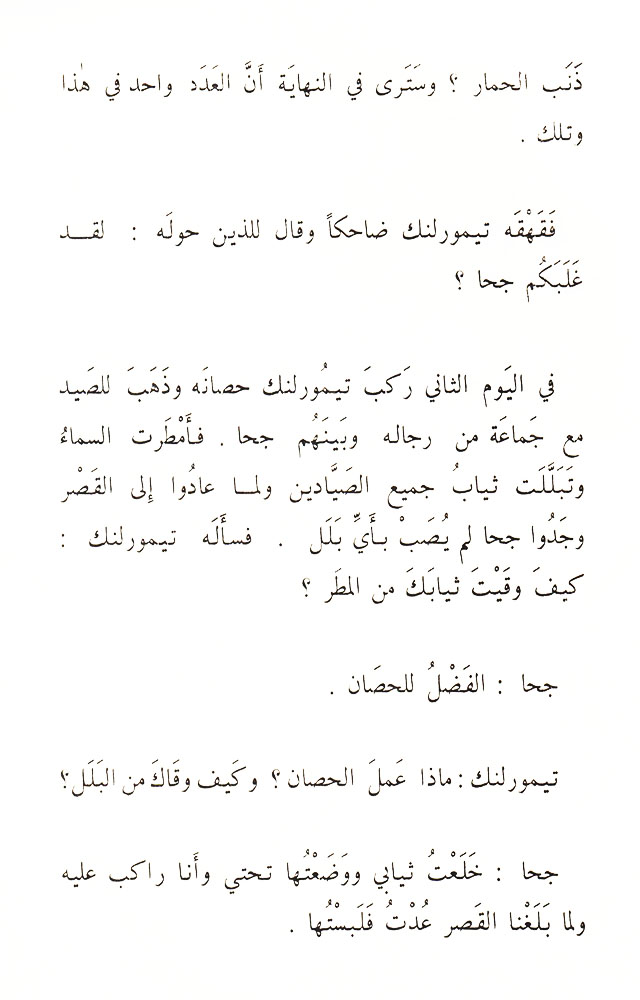 ذَنَب الحمار ؟ وسَتَرى في النهايَة أَنَّ العَدَد واحد في هٰذا
وتلك .
فَقَهْقَه تيمورلنك ضاحكاً وقال للذين حولَه : لقــد
غَلَبَكُم جحا ؟
في اليَوم الثاني رَكبَ تيمُورلنك حصانَه وذَهَبَ للصَيد
مع جَماعَة من رجاله وبَينَهُم جحا . فأَمْطَرت السماءُ
وتَبَلَّلَت ثيابُ جميع الصَيَّادين ولمــا عادُوا إلى القَصْر
وجَدُوا جحا لم يُصَبْ بأَيِّ بَلَل . فسأَلَه تيمورلنك :
كيفَ وقَيْتَ ثيابَكَ من المطَر ؟
جحا : الفَضْلُ للحصَان .
تيمورلنك : ماذا عَملَ الحصان ؟ وكَيف وقَاكَ من البَلَل ؟
جحا : خَلَعْتُ ثيابي ووَضَعْتُها تحتي وأَنا راكب عليه
ولما بَلَغْنا القَصر عُدْتُ فَلَبسْتُها .